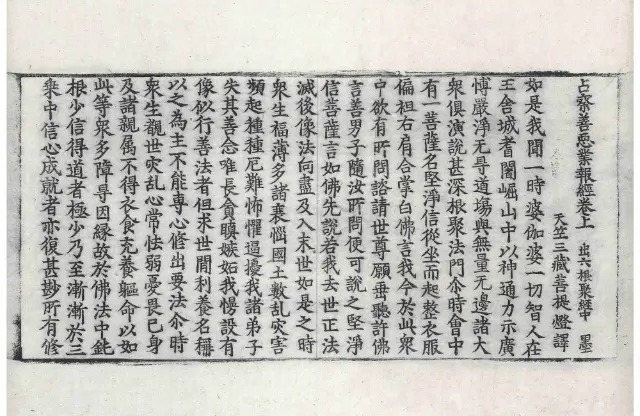 占察善惡業報經卷上 出六根聚經中 墨
天竺三藏菩提燈譯
如是我聞一時婆伽婆一切智人在
王舍城耆闍崛山中以神通力示廣
博嚴淨无㝵道場與無量无邊諸大
衆俱演說甚深根聚法門尒時會中
有一菩薩名堅淨信從坐而起整衣服
偏袒右肩合掌白佛言我今於此衆
中欲有所問諮請世尊願垂聽許佛
言善男子隨汝所問便可說之堅淨
信菩薩言如佛先說若我去世正法
滅後像法向盡及入末世如是之時
衆生福薄多諸衰惱國土數亂灾害
頻起種種厄難怖懼逼擾我諸弟子
失其善念唯長貪瞋嫉妬我慢設有
像似行善法者但求世間利養名稱
以之為主不能專心修出要法尒時
衆生覩世灾乱心常怯弱憂畏己身
及諸親属不得衣食充養軀命以如
此等衆多障㝵因緣故於佛法中鈍
根少信得道者極少乃至漸漸於三
乗中信心成就者亦復甚尠所有修